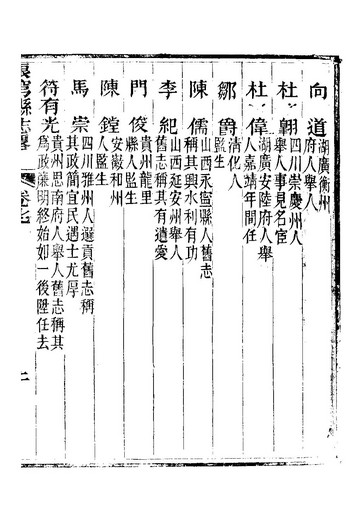 向道 湖廣衡州
府人舉人
杜翺 四川崇慶州人
舉人事見名宦
杜偉 湖廣安陸府人舉
人嘉靖年間任
鄒爵 清化人
監生
陳儒 山西永寧縣人舊志
稱其興水利有功
李紀 山西延安州舉人
舊志稱其有遺愛
門俊 貴州龍里
縣人監生
陳鏜 安徽和州
人監生
馬崇 四川雅州人選貢舊志稱
其政簡宜民遇士尤厚
符有光 貴州思南府人舉人舊志稱其
為政廉明終始如一後陞任去
縣志畧 卷七 二